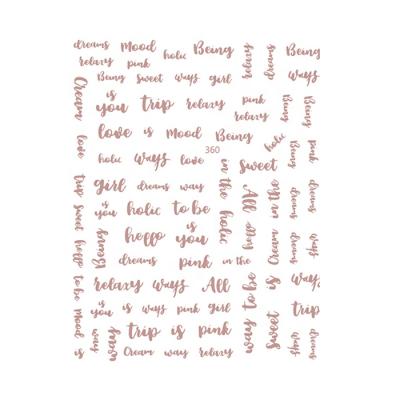 dreams Mood holic Being
relaxy pink
relaxy
dreams
Being
Being sweet ways girl
ways
Cream
is
you trip relaxy pink
relaxy
Being
Being
love is Mood Being
holic
love
holic ways love
360
sweet
Being
pink
trip
girl dreams way
in the
holic
All
hello
Cream in the
is
dreams
dreams
sweet
is
you holic to be
hello
Being
hello is
you
dreams
ways
to be
dreams pink in the
relaxy ways All
way to be
sweet
is
ways
Mood
you is ways pink girl
trip
is
way
ways
trip is pink
Cream way relaxy
dreams